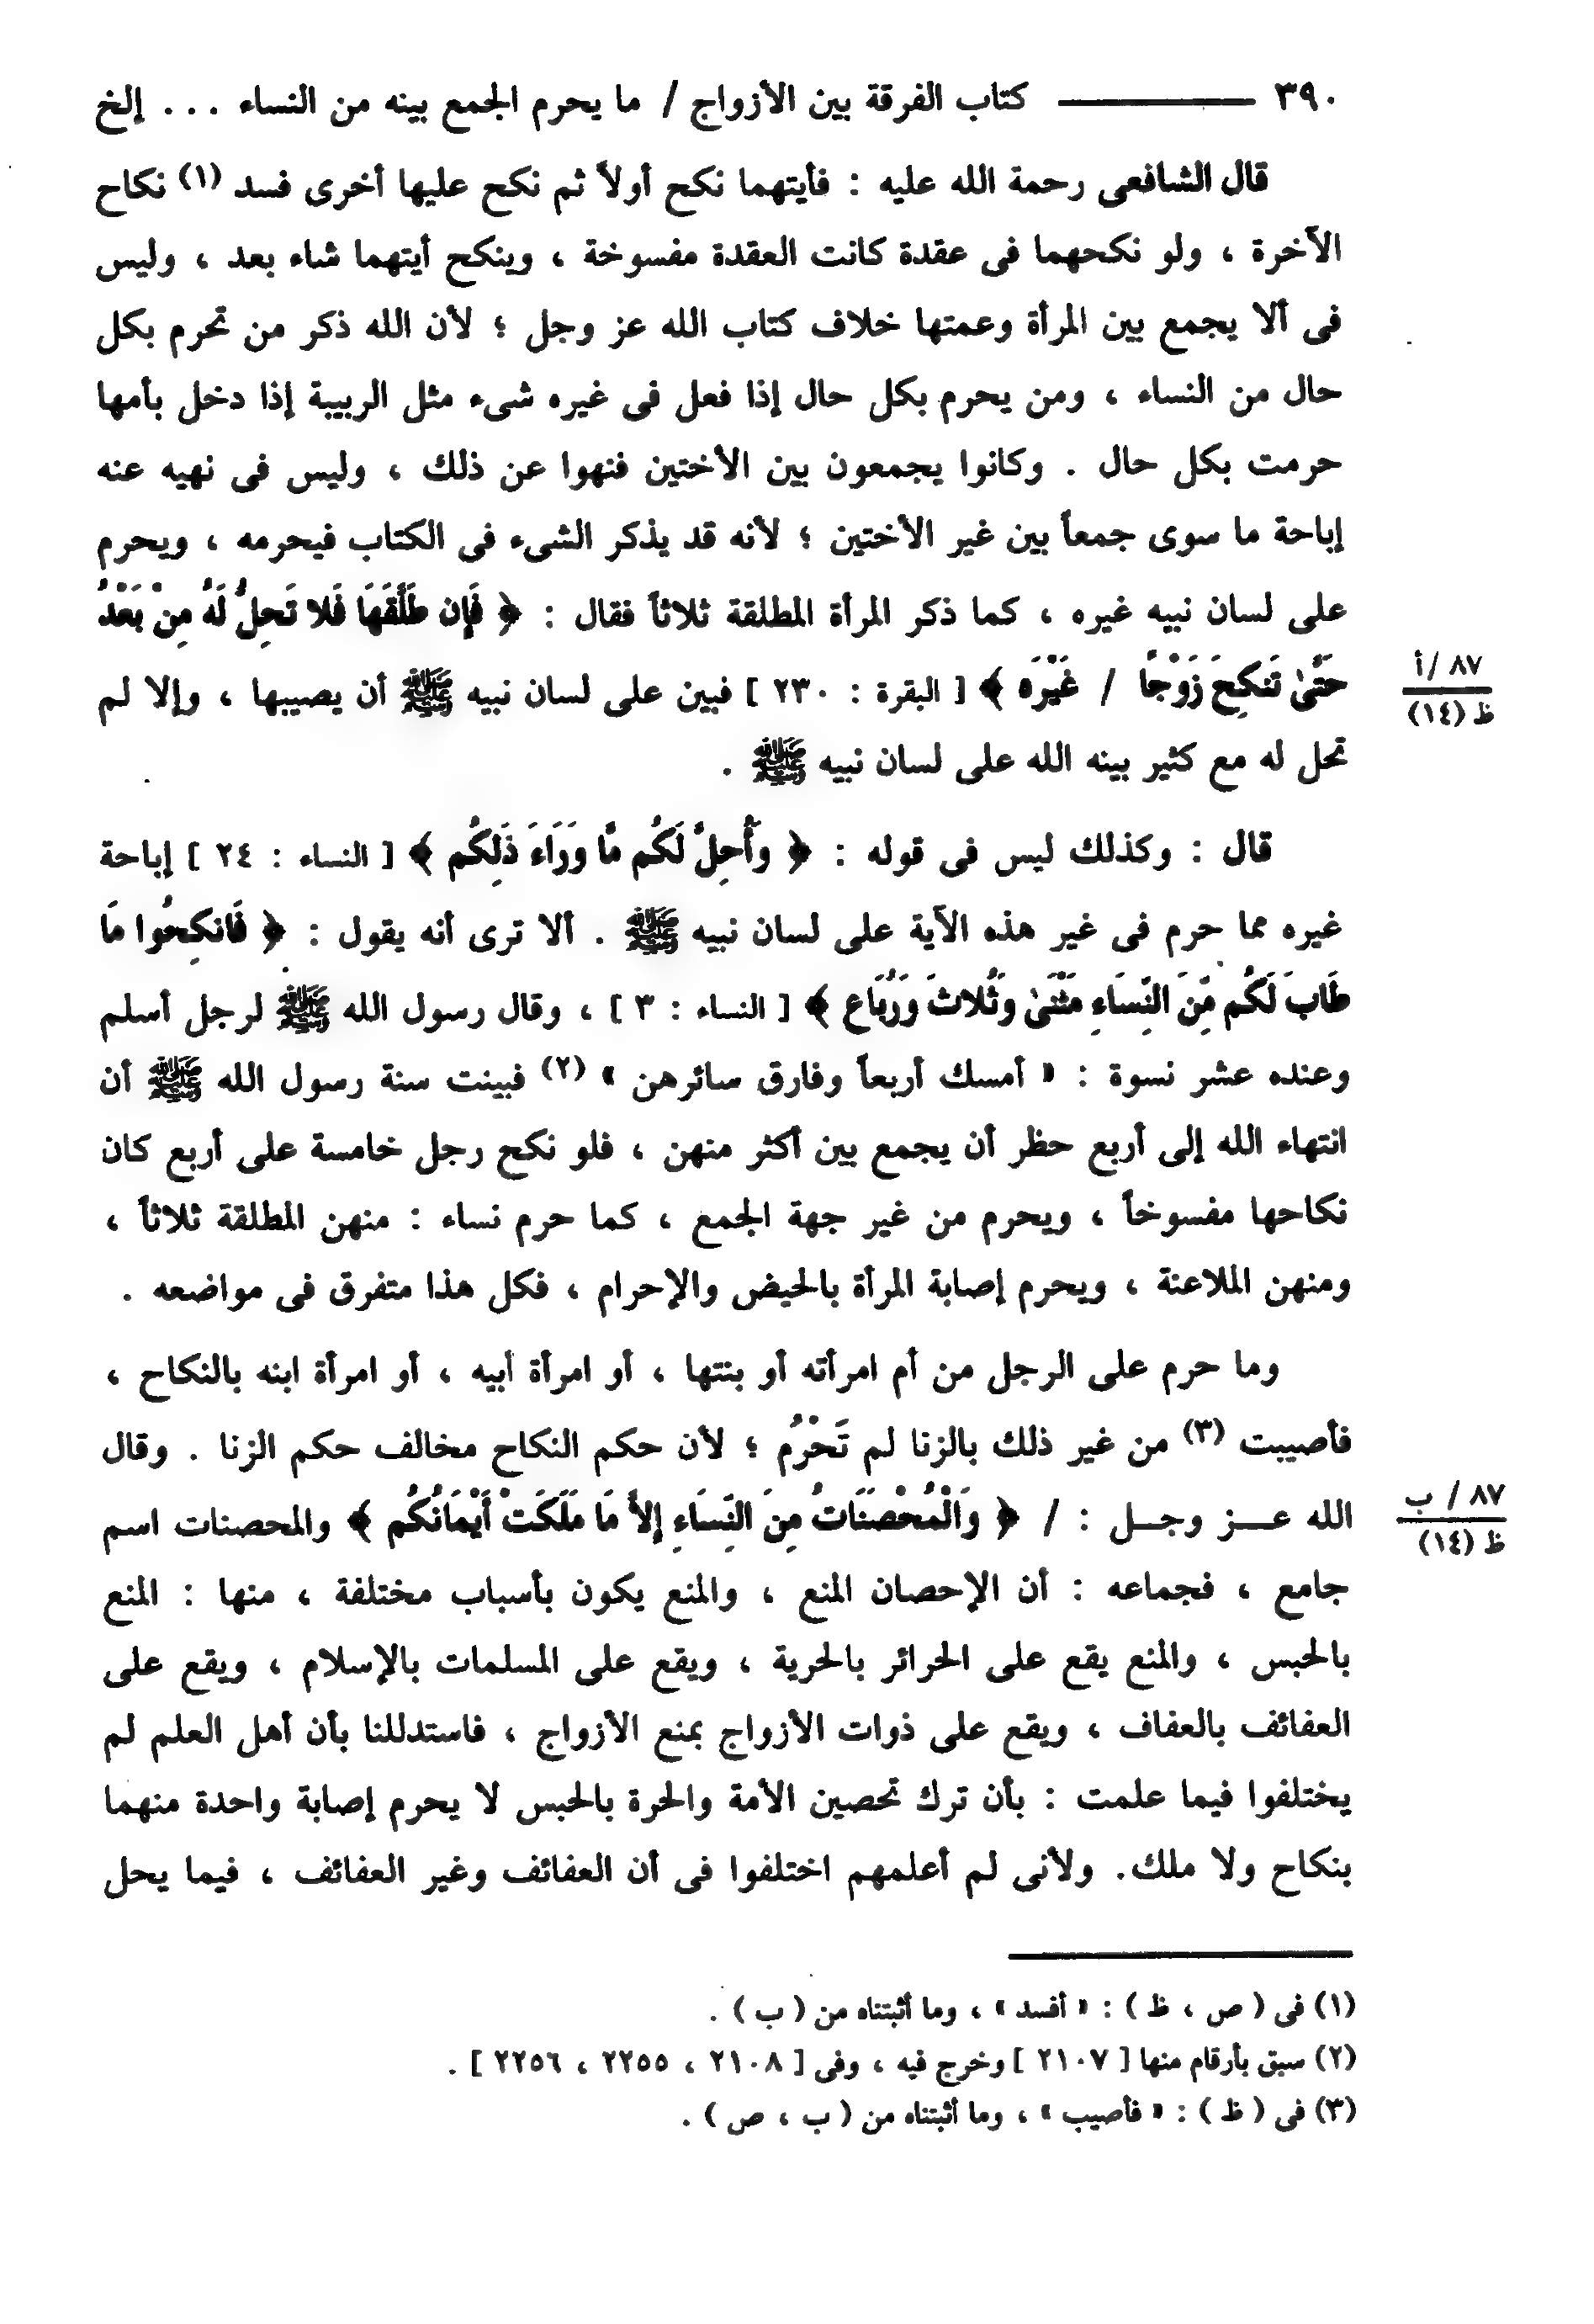 ٣٩٠ ــــــــــــ كتاب الفرقة بين الأزواج / ما يحرم الجمع بينه من النساء ... إلخ
قال الشافعى رحمة الله عليه : فأيتهما نكح أولاً ثم نكح عليها أخرى فسد (١) نكاح
الآخرة ، ولو نكحهما فى عقدة كانت العقدة مفسوخة ، وينكح أيتهما شاء بعد ، وليس
فى ألا يجمع بين المرأة وعمتها خلاف كتاب الله عز وجل ؛ لأن الله ذكر من تحرم بكل
حال من النساء ، ومن يحرم بكل حال إذا فعل فى غيره شىء مثل الربيبة إذا دخل بأمها
حرمت بكل حال . وكانوا يجمعون بين الأختين فنهوا عن ذلك ، وليس فى نهيه عنه
إباحة ما سوى جمعاً بين غير الأختين ؛ لأنه قد يذكر الشىء فى الكتاب فيحرمه ، ويحرم
على لسان نبيه غيره ، كما ذكر المرأة المطلقة ثلاثاً فقال : ﴿ فَإِن طَلَّقَهَا فَلا تَحِلُّ لَهُ مِنْ بَعْدُ
حَتَّىٰ تَنكِحَ زَوْجًا / غَيْرَه ﴾ [ البقرة : ٢٣٠ ] فبين على لسان نبيه ﷺ أن يصيبها ، وإلا لم
٨٧ /أ
ظ (١٤)
تحل له مع كثير بينه الله على لسان نبيه ﷺ .
قال : وكذلك ليس فى قوله : ﴿ وَأُحِلَّ لَكُم مَّا وَرَاءَ ذَلِكُم ﴾ [ النساء : ٢٤ ] إباحة
غيره مما حرم فى غير هذه الآية على لسان نبيه ﷺ . ألا ترى أنه يقول : ﴿ فَانكِحُوا مَا
طَابَ لَكُم مِّنَ النِّسَاءِ مَثْنَىٰ وَثُلاثَ وَرُبَاعَ ﴾ [ النساء : ٣ ] ، وقال رسول الله ﷺ لرجل أسلم
وعنده عشر نسوة : « أمسك أربعاً وفارق سائرهن » (٢) فبينت سنة رسول الله ﷺ أن
انتهاء الله إلى أربع حظر أن يجمع بين أكثر منهن ، فلو نكح رجل خامسة على أربع كان
نكاحها مفسوخاً ، ويحرم من غير جهة الجمع ، كما حرم نساء : منهن المطلقة ثلاثاً ،
ومنهن الملاعنة ، ويحرم إصابة المرأة بالحيض والإحرام ، فكل هذا متفرق فى مواضعه .
وما حرم على الرجل من أم امرأته أو بنتها ، أو امرأة أبيه ، أو امرأة ابنه بالنكاح ،
فأصيبت (٣) من غير ذلك بالزنا لم تَحْرُم ؛ لأن حكم النكاح مخالف حكم الزنا . وقال
الله عــز وجــل : / ﴿ وَالْمُحْصَنَاتُ مِنَ النِّسَاءِ إِلاَّ مَا مَلَكَتْ أَيْمَانُكُم ﴾ والمحصنات اسم
٨٧ / ب
ظ (١٤)
جامع ، فجماعه : أن الإحصان المنع ، والمنع يكون بأسباب مختلفة ، منها : المنع
بالحبس ، والمنع يقع على الحرائر بالحرية ، ويقع على المسلمات بالإسلام ، ويقع على
العفائف بالعفاف ، ويقع على ذوات الأزواج بمنع الأزواج ، فاستدللنا بأن أهل العلم لم
يختلفوا فيما علمت : بأن ترك تحصين الأمة والحرة بالحبس لا يحرم إصابة واحدة منهما
بنكاح ولا ملك. ولأنى لم أعلمهم اختلفوا فى أن العفائف وغير العفائف ، فيما يحل
(١) فى ( ص ، ظ ) : « أفسد » ، وما أثبتناه من ( ب ) .
(٢) سبق بأرقام منها [ ٢١٠٧ ] وخرج فيه ، وفى [ ٢١٠٨ ، ٢٢٥٥ ، ٢٢٥٦ ] .
(٣) فى ( ظ ) : « فأصيب » ، وما أثبتناه من ( ب ، ص ) .